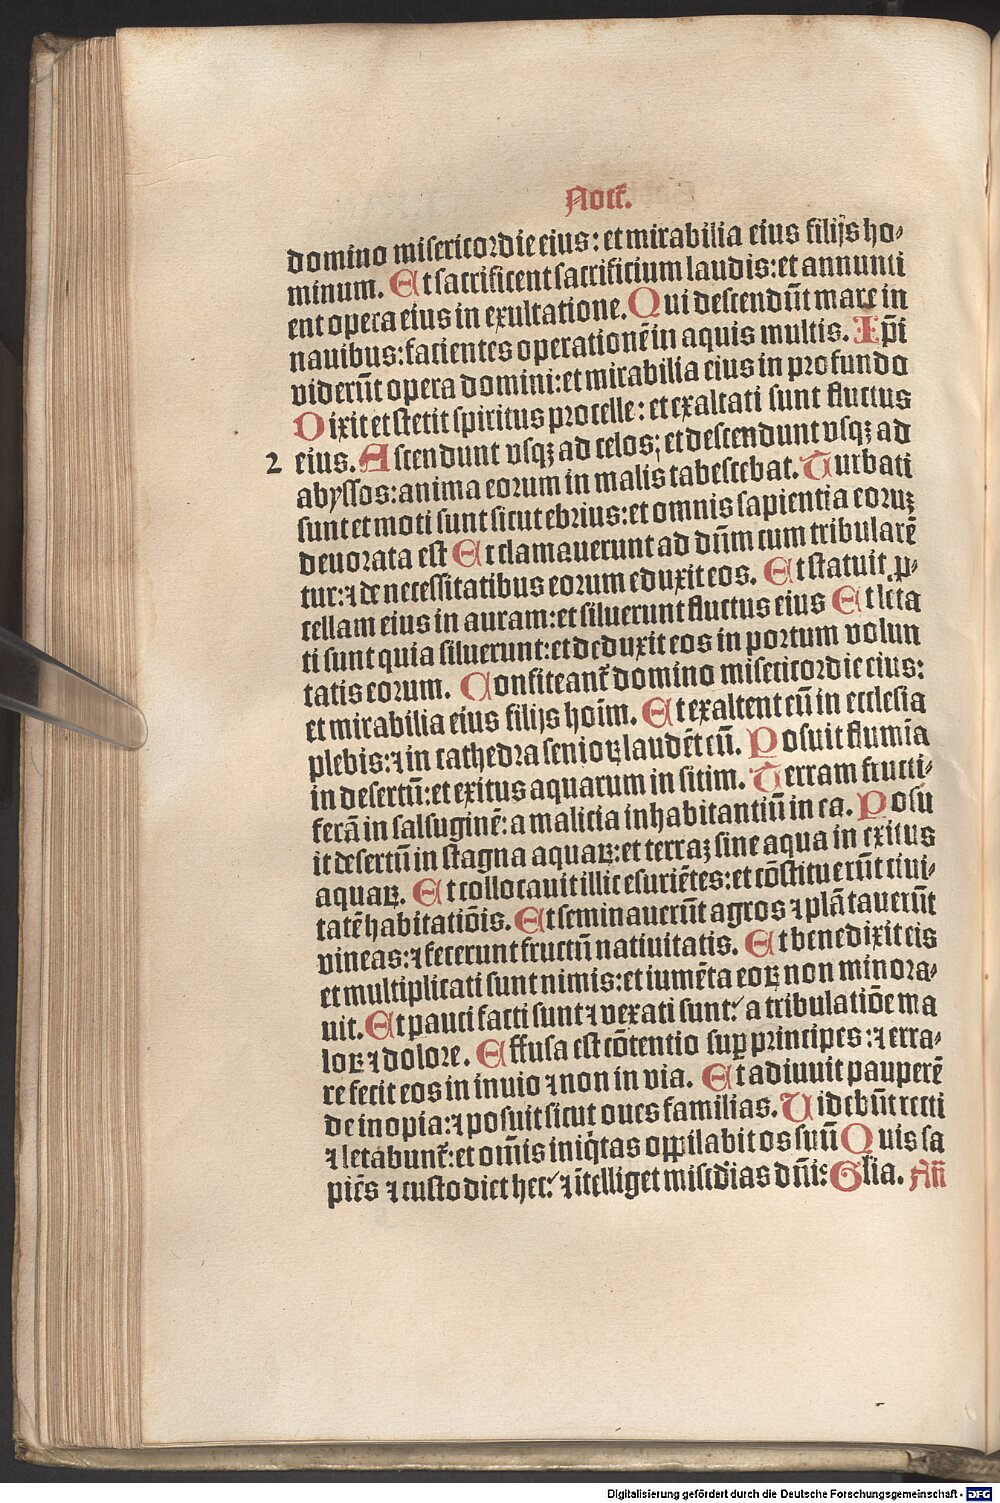 Noct̃.
domino misericordie eius: et mirabilia eius filijs ho⸗
minum. Et sacrificent sacrificium laudis: et annunti
ent opera eius in exultatione. Qui descendũt mare in
nauibus: facientes operationẽ in aquis multis. Ip̃i
viderũt opera domini: et mirabilia eius in profundo
Dixit et stetit spiritus procelle: et exaltati sunt fluctus
2 eius. Ascendunt vsqꝫ ad celos: et descendunt vsqꝫ ad
abyssos: anima eorum in malis tabescebat. Turbati
sunt et moti sunt sicut ebrius: et omnis sapientia eoruꝫ
deuorata est Et clamauerunt ad dñm cum tribularẽ
tur: ⁊ de necessitatibus eorum eduxit eos. Et statuit ꝓ⸗
cellam eius in auram: et siluerunt fluctus eius Et leta
ti sunt quia siluerunt: et deduxit eos in portum volun
tatis eorum. Confiteant̃ domino misericordie eius:
et mirabilia eius filijs hoĩm. Et exaltent eũ in ecclesia
plebis: ⁊ in cathedra senioꝝ laudẽt eũ. Posuit flumĩa
in desertũ: et exitus aquarum in sitim. Terram fructi⸗
ferã in salsuginẽ: a malicia inhabitantiũ in ea. Posu
it desertũ in stagna aquaꝝ: et terraꝫ sine aqua in exitus
aquaꝝ. Et collocauit illic esuriẽtes: et cõstituerũt ciui⸗
tatẽ habitatiõis. Et seminauerũt agros ⁊ plãtauerũt
vineas: ⁊ fecerunt fructũ natiuitatis. Et benedixit eis
et multiplicati sunt nimis: et iumẽta eoꝝ non minora⸗
uit. Et pauci facti sunt ⁊ vexati sunt: a tribulatiõe ma
loꝝ ⁊ dolore. Effusa est cõtentio suꝑ principes: ⁊ erra⸗
re fecit eos in inuio ⁊ non in via. Et adiuuit pauperẽ
de inopia: ⁊ posuit sicut oues familias. Videbũt recti
⁊ letabunt̃: et om̃is iniq̃tas oppilabit os suũ Quis sa
piẽs ⁊ custodiet hec: ⁊ ĩtelliget miscd̃ias dñi: Gl̃ia. Añ
Digitalisierung gefördert durch die Deutsche Forschungsgemeinschaft - DFG